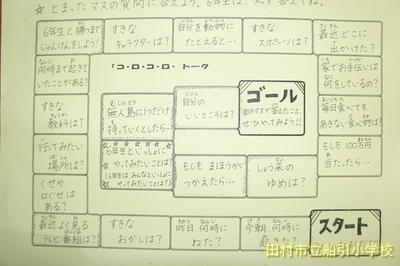 ☆とまったマスの質問に答えよう。6年生は、必ず答えてね。
6年生と勝つまで
じゃんけんをしよう!
すきな
キャラクターは?
自分を動物に
たとえると…
すきな
スポーツは?
最近どこに
出かけた?
何時まで起きて
いたことがある?
「コ・ロ・コ・ロ・トーク
家でお手伝いは
何をしているの?
無人島に1つだけ
持っていくとしたら…
自分の
いいところは?
ゴール
☆のマスで答えたこと、
ぜひやってみよう!!
すきな
教科は?
毎日食べても
あきない食べ物は?
6年生といっしょに
やってみたいことは?
(6年生は、みんなといっしょに
やってみたいことは?)
もしもまほうが
つかえたら…
しょう来の
ゆめは?
行ってみたい
場所は?
もし100万円
当たったら…
くせや
口ぐせは
ある?
最近よく見る
テレビ番組は?
すきな
おかしは?
昨日、何時に
ねた?
今朝、何時に
起きた?
スタート
田村市立船引小学校